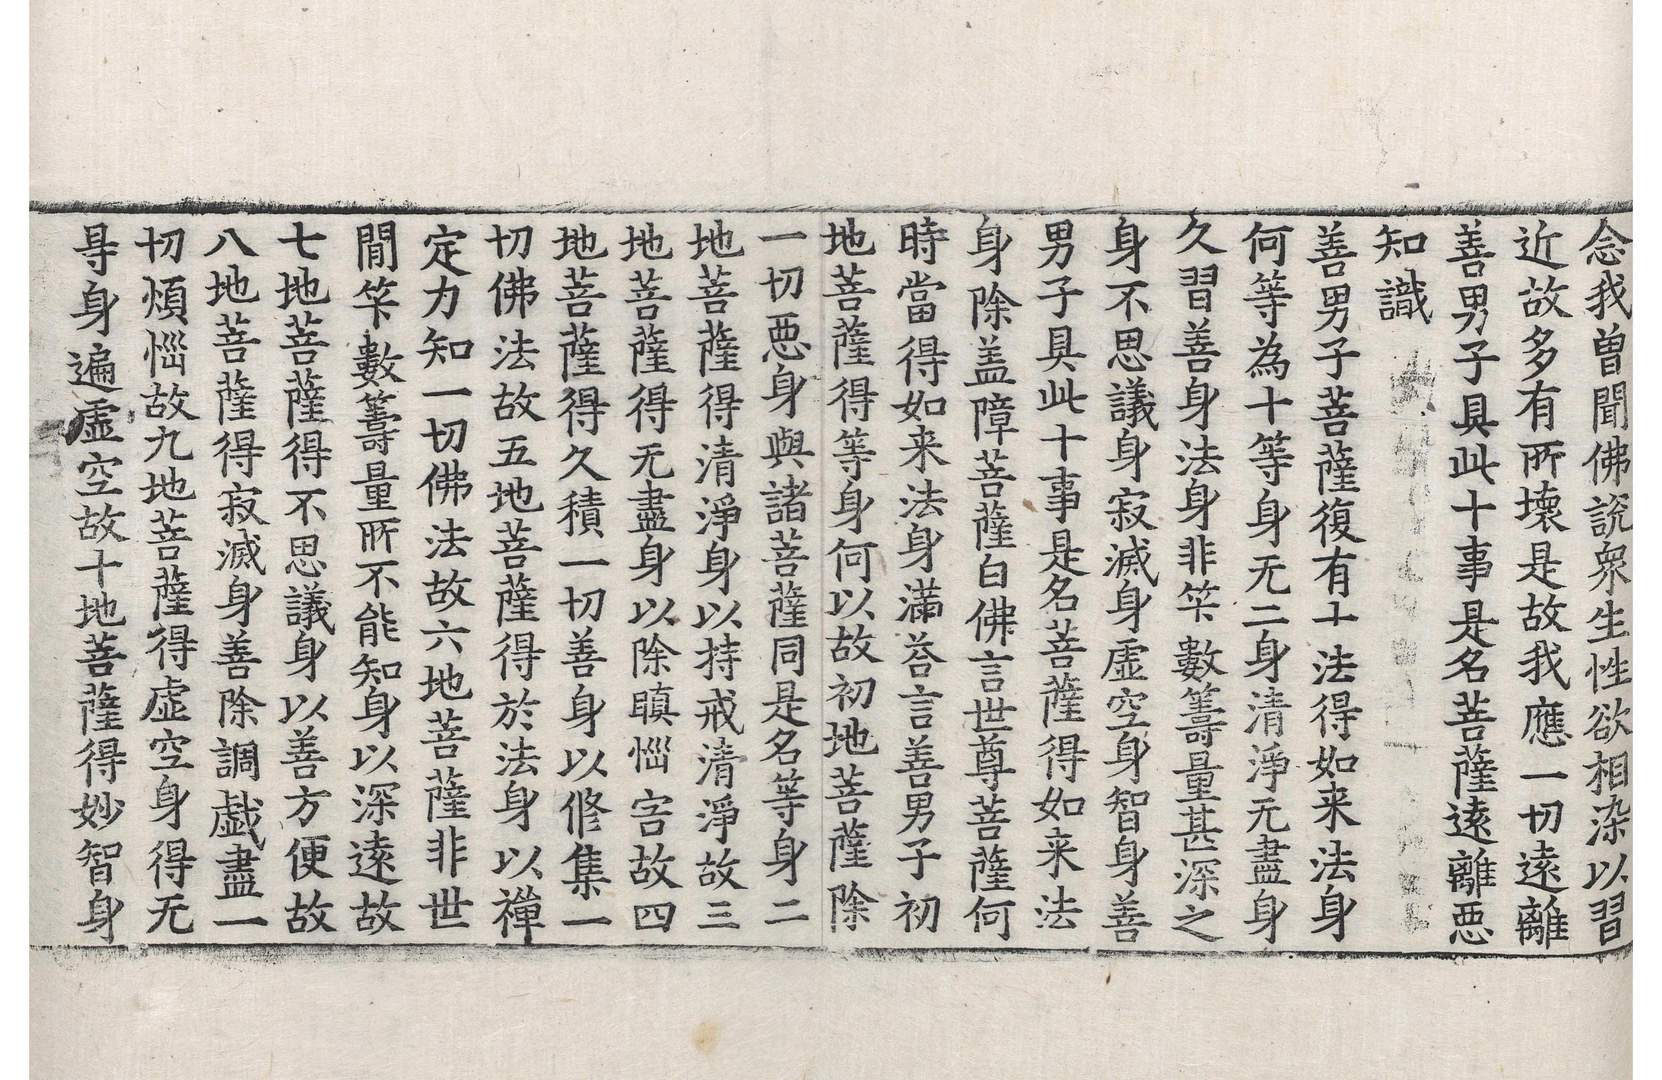 念我曽聞佛說衆生性欲相染以習
近故多有所壞是故我應一切遠離
善男子具此十事是名菩薩遠離惡
知識
善男子菩薩復有十法得如来法身
何等為十等身无二身清淨无盡身
久習善身法身非笇數籌量甚深之
身不思議身寂滅身虛空身智身善
男子具此十事是名菩薩得如来法
身除盖障菩薩白佛言世尊菩薩何
時當得如来法身滿荅言善男子初
地菩薩得等身何以故初地菩薩除
一切惡身與諸菩薩同是名等身二
地菩薩得清淨身以持戒清淨故三
地菩薩得无盡身以除瞋惱害故四
地菩薩得久積一切善身以修集一
切佛法故五地菩薩得於法身以禪
定力知一切佛法故六地菩薩非世
閒笇數籌量所不能知身以深遠故
七地菩薩得不思議身以善方便故
八地菩薩得寂滅身善除調戲盡一
切煩惱故九地菩薩得虛空身得无
㝵身遍虛空故十地菩薩得妙智身